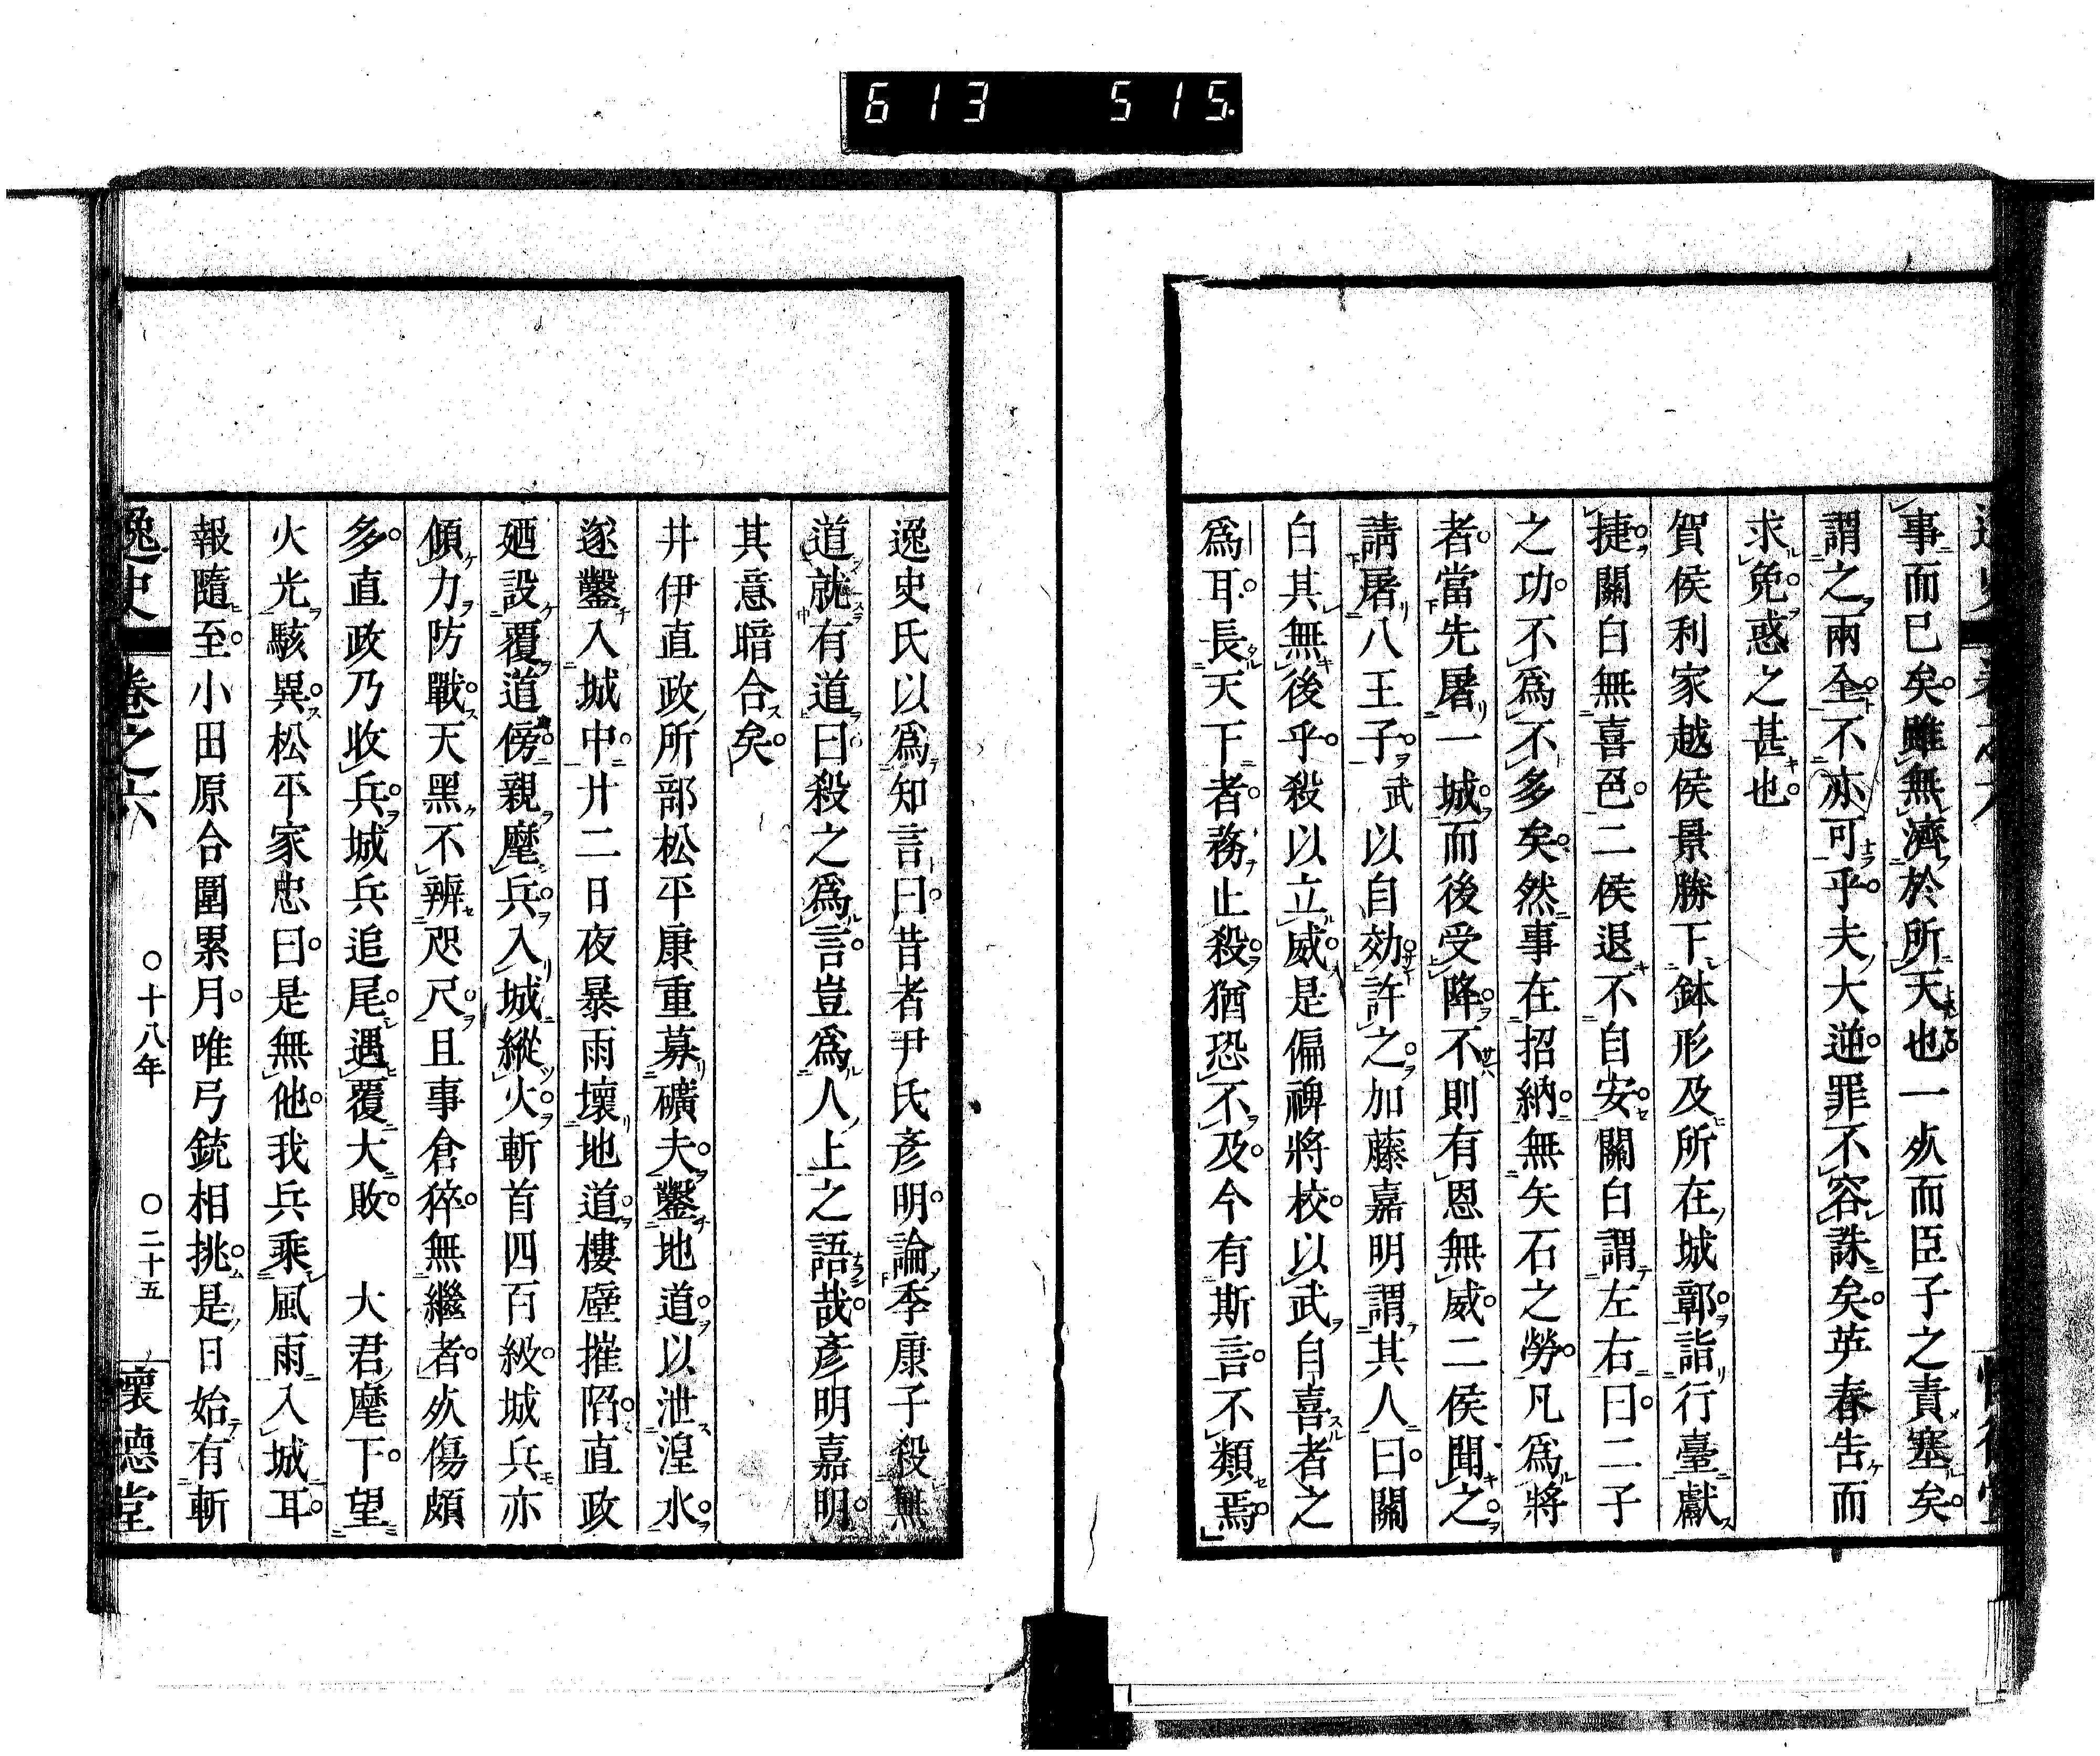 613 515
事而已矣雖無濟於所天也一㱕而臣子之責塞矣
謂之兩全不亦可乎夫大逆罪不容誅矣英春吿而
求免惑之甚也
賀侯利家越侯景勝下鉢形及所在城郭詣行臺獻
捷關白無喜色二侯退不自安關白謂左右曰二子
之功不爲不多矣然事在招納無矢石之勞凡爲將
者當先屠一城而後受降不則有恩無威二侯聞之
請屠八王子武以自効許之加藤嘉明謂其人曰關
白其無後乎殺以立威是偏禆將校以武自喜者之
爲耳長天下者務止殺猶恐不及今有斯言不類焉
逸史氏以爲知言曰昔者尹氏彥明論季康子殺無
道就有道曰殺之爲言豈爲人上之語哉彥明嘉明
其意暗合矣
井伊直政所部松平康重募礦夫鑿地道以泄湟水
遂鑿入城中廿二日夜暴雨壞地道樓壁摧陷直政
廼設覆道傍親麾兵入城縱火斬首四百級城兵亦
傾力防戰天黑不辨咫尺且事倉猝無繼者㱕傷頗
多直政乃收兵城兵追尾遇覆大敗　大君麾下望
火光駭異松平家忠曰是無他我兵乘風雨入城耳
報隨至小田原合圍累月唯弓銃相挑是日始有斬
逸史 卷之六 ○十八年 ○二十五 懷德堂